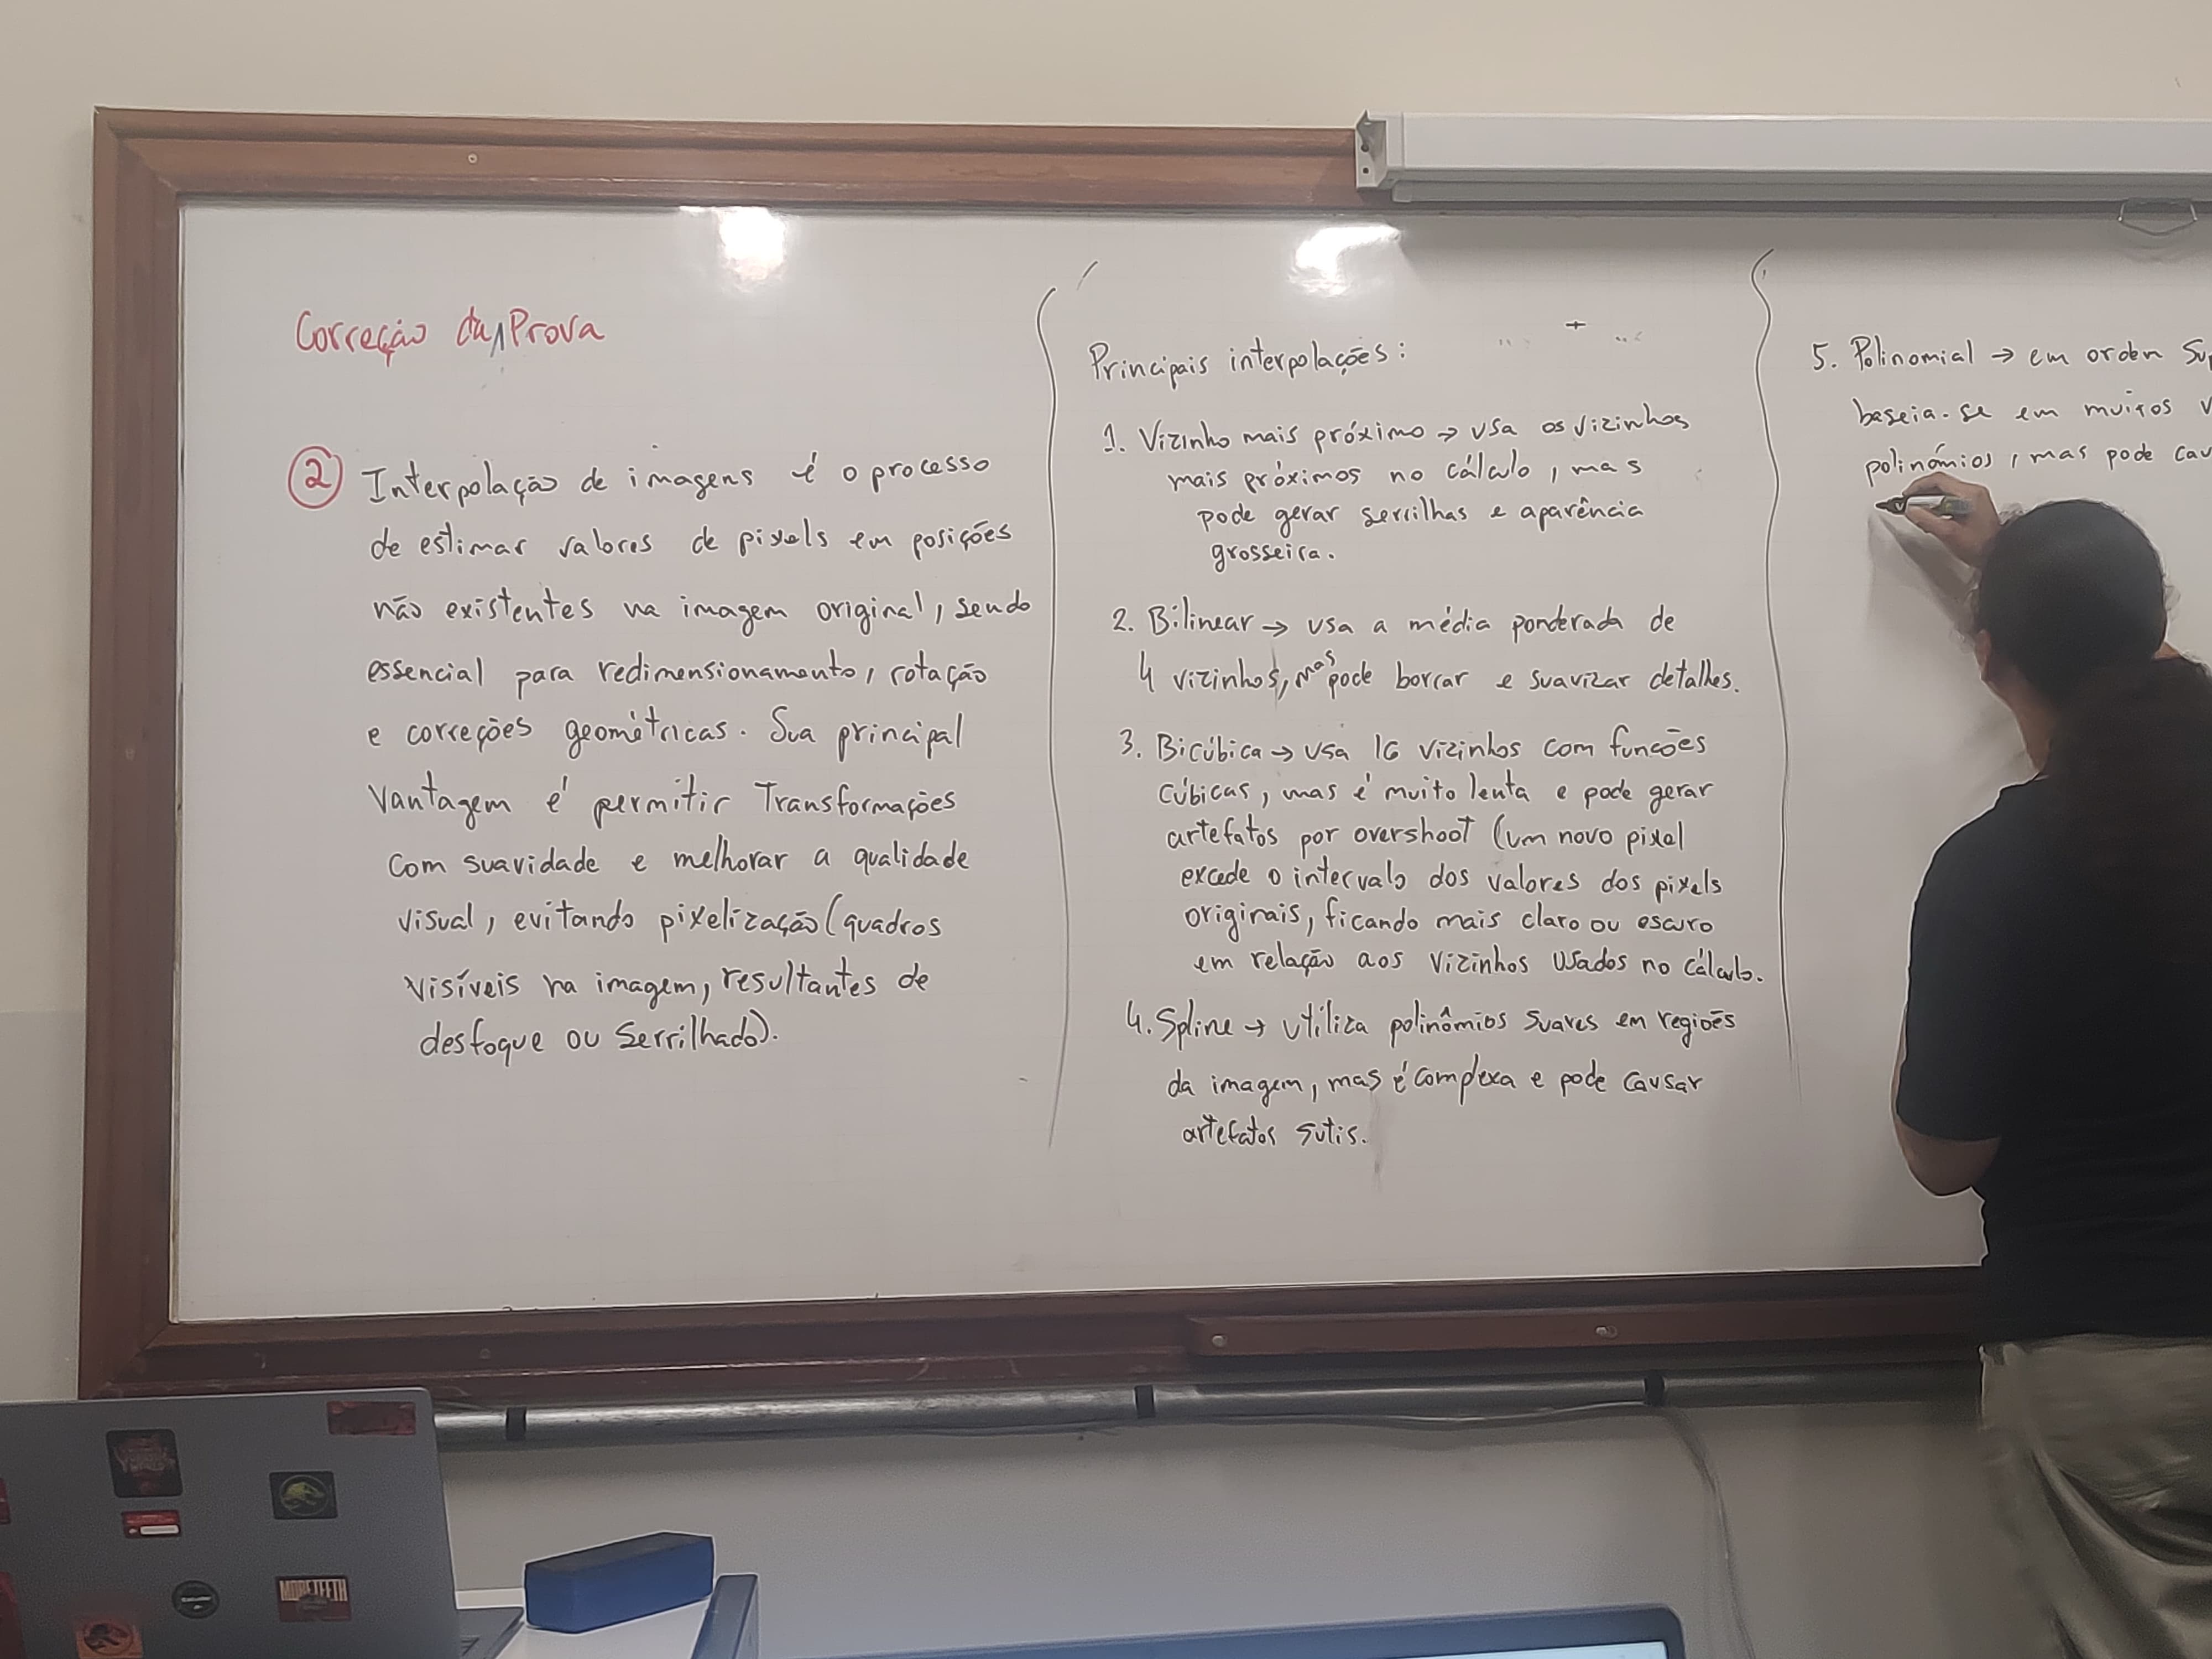 Correção da Prova
2 Interpolação de imagens é o processo
de estimar valores de pixels em posições
não existentes na imagem original, sendo
essencial para redimensionamento, rotação
e correções geométricas. Sua principal
vantagem é permitir Transformações
com suavidade e melhorar a qualidade
visual, evitando pixelização (quadros
visíveis na imagem, resultantes de
desfoque ou serrilhado).
Principais interpolações:
1. Vizinho mais próximo → usa os vizinhos
mais próximos no cálculo, mas
pode gerar serrilhas e aparência
grosseira.
2. Bilinear → usa a média ponderada de
4 vizinhos, mas pode borrar e suavizar detalhes.
3. Bicúbica → usa 16 vizinhos com funcões
cúbicas, mas é muito lenta e pode gerar
artefatos por overshoot (um novo pixel
excede o intervalo dos valores dos pixels
originais, ficando mais claro ou escuro
em relação aos vizinhos usados no cálculo.
4. Spline → utiliza polinômios suaves em regiões
da imagem, mas é complexa e pode causar
artefatos sutis.
5. Polinomial → em orden Sup
baseia-se em muitos v
polinômios, mas pode cau
MORE TEETH